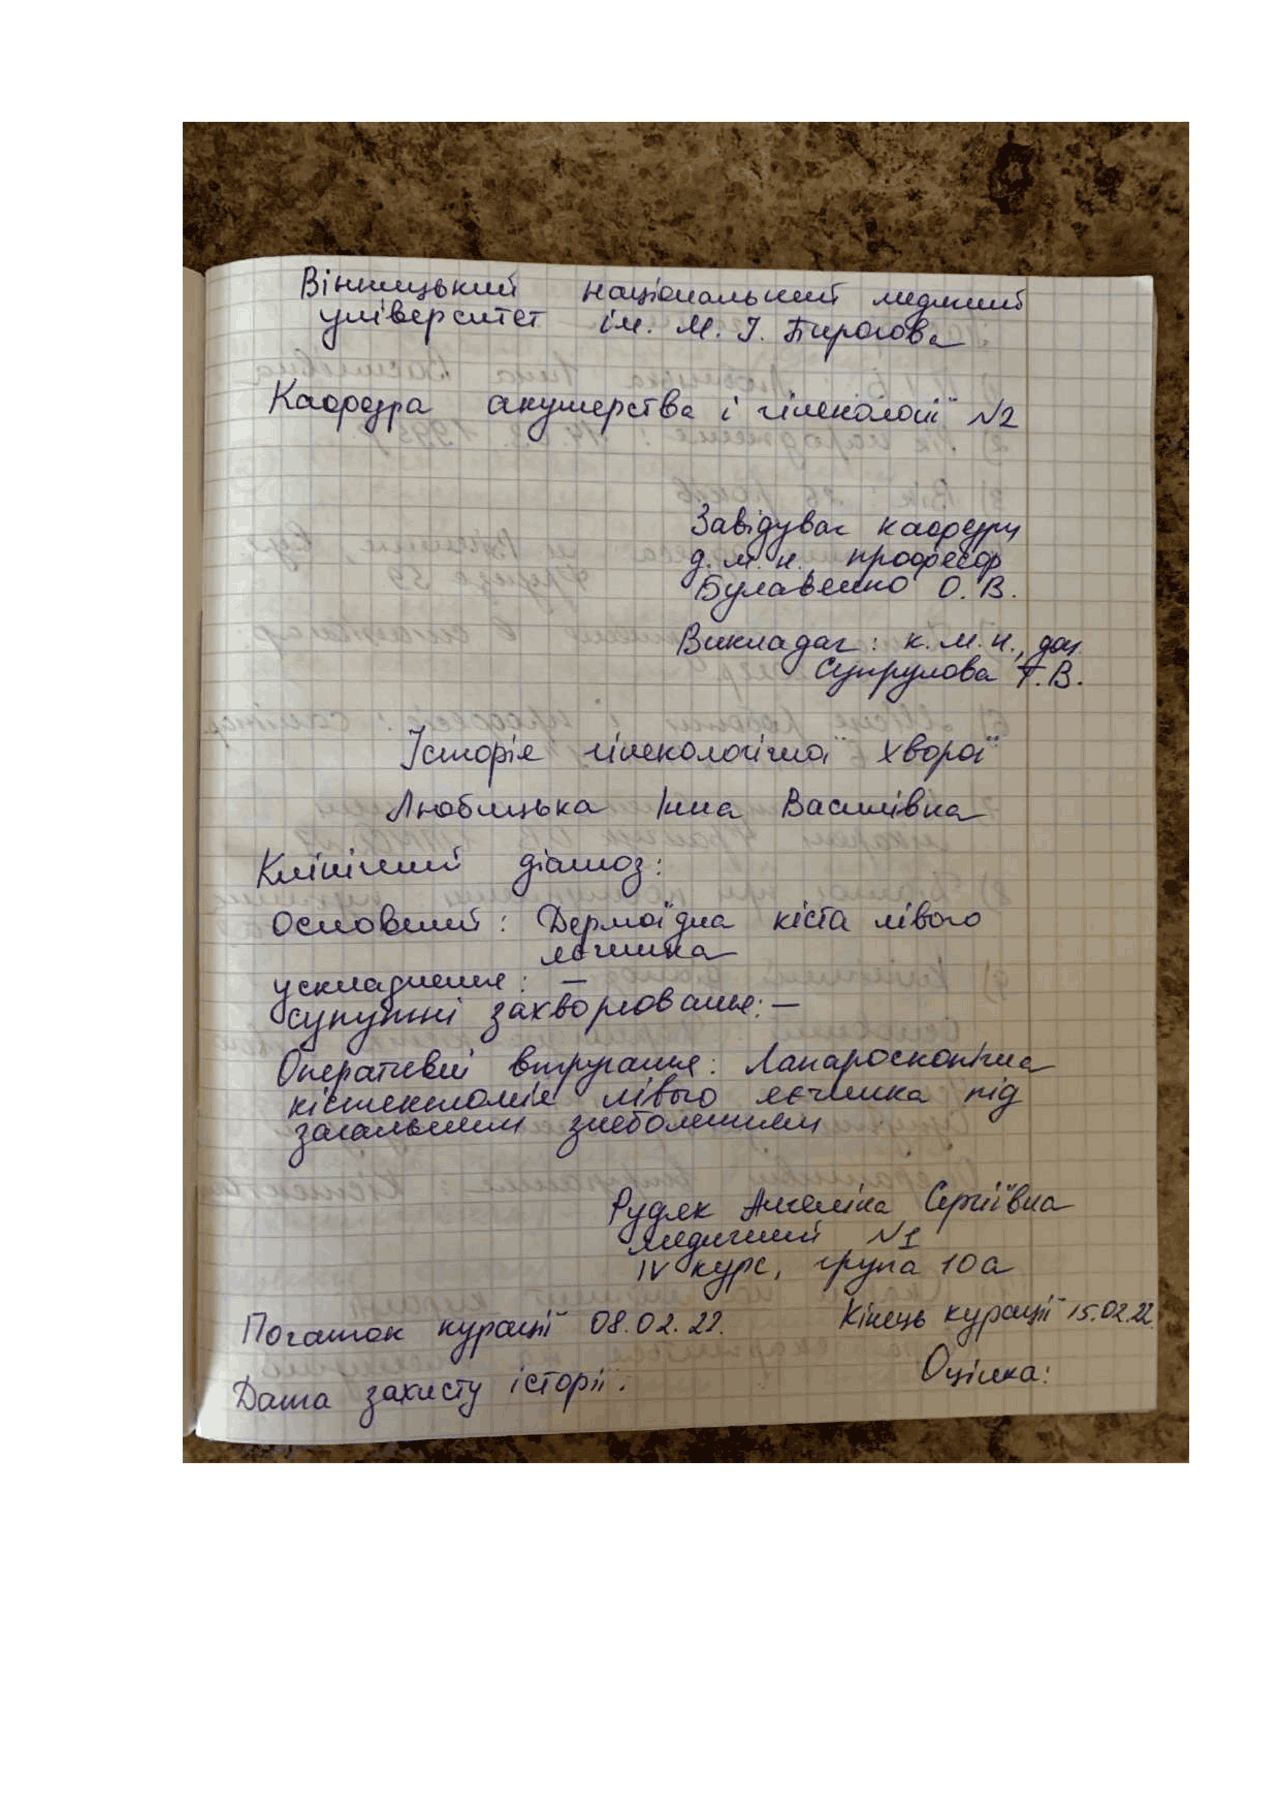 Вінницький національний медичний
університет ім. М. І. Пирогова
Кафедра акушерства і гінекології №2
Завідувач кафедри
д. м. н., професор
Булавенко О. В.
Викладач: к. м. н., доц.
Супрунова Т. В.
Історія гінекологічної хворої
Любицька Інна Василівна
Клінічний діагноз:
Основний: Дермоїдна кіста лівого
яєчника
ускладнення: —
супутні захворювання: —
Оперативні втручання: Лапароскопічна
кістектомія лівого яєчника під
загальним знеболенням
Рудяк Ангеліна Сергіївна
медичний №1
IV курс, група 10а
Початок курації 08.02.22. Кінець курації 15.02.22.
Дата захисту історії: Оцінка: